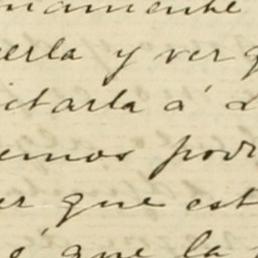 namente
erla y ver q
ictarla á
emos pod
er que est
é que la